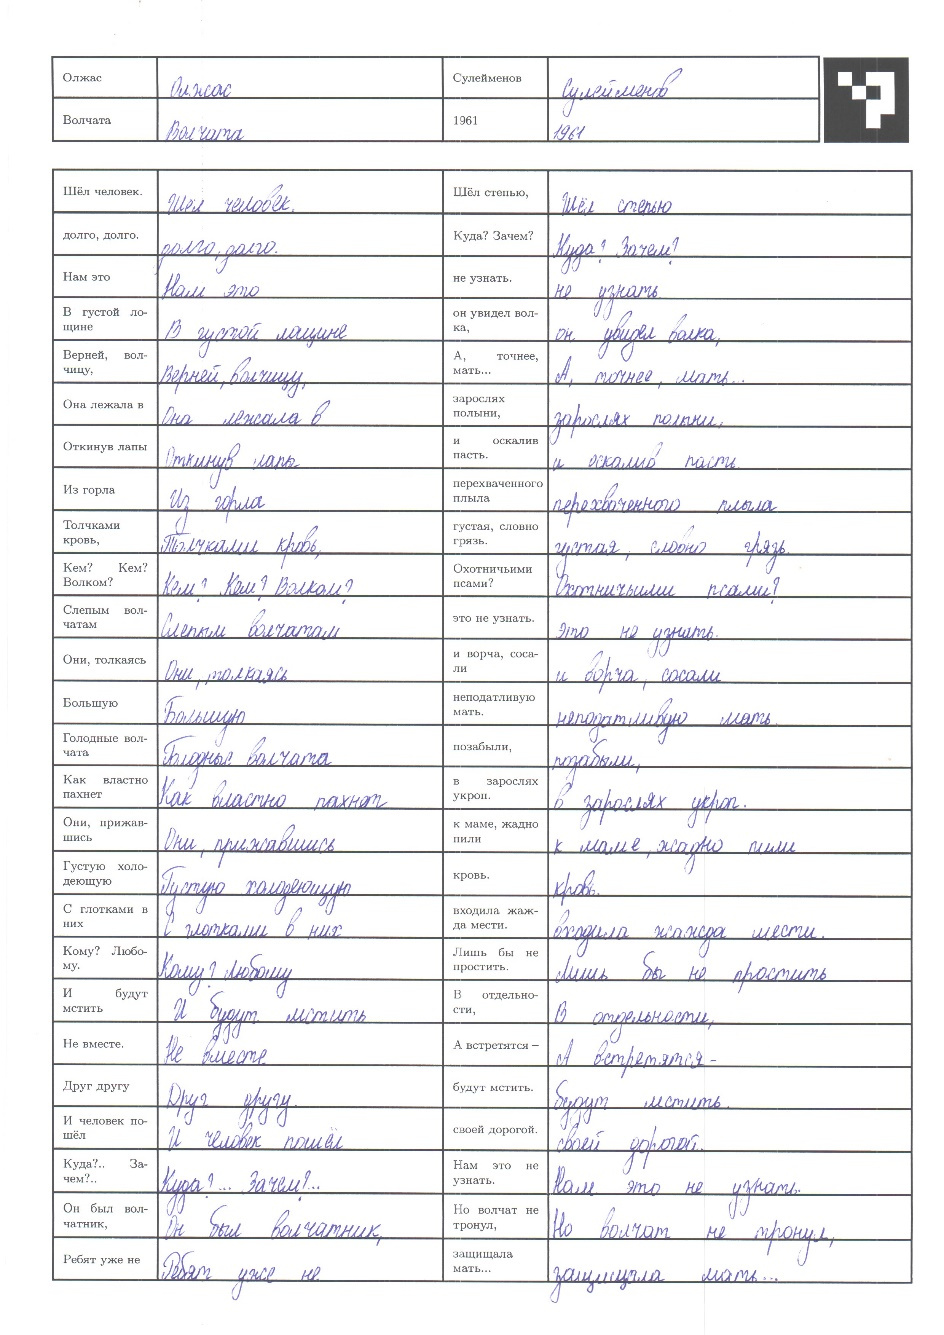 Олжас
Олжас
Сулейменов
Сулейменов
Волчата
Волчата
1961
1961
Шёл человек.
Шёл человек.
Шёл степью,
Шёл степью
долго, долго.
долго, долго.
Куда? Зачем?
Куда? Зачем?
Нам это
Нам это
не узнать.
не узнать
В густой ло-
щине
В густой лащине
он увидел вол-
ка,
он увидел волка,
Верней, вол-
чицу,
Верней, волчицу,
А, точнее,
мать...
А, точнее, мать...
Она лежала в
Она лежала в
зарослях
полыни,
зарослях полыни,
Откинув лапы
Откинув лапы
и оскалив
пасть.
и оскалив пасть.
Из горла
Из горла
перехваченного
плыла
перехваченного плыла
Толчками
кровь,
Толчками кровь,
густая, словно
грязь.
густая, словно грязь.
Кем? Кем?
Волком?
Кем? Кем? Волком?
Охотничьими
псами?
Охотничьими псами?
Слепым вол-
чатам
Слепым волчатам
это не узнать.
это не узнать.
Они, толкаясь
Они, толкаясь
и ворча, соса-
ли
и ворча, сосали
Большую
Большую
неподатливую
мать.
неподатливую мать.
Голодные вол-
чата
Голодные волчата
позабыли,
позабыли,
Как властно
пахнет
Как властно пахнет
в зарослях
укроп.
в зарослях укроп.
Они, прижав-
шись
Они, прижавшись
к маме, жадно
пили
к маме, жадно пили
Густую холо-
деющую
Густую холодеющую
кровь.
кровь.
С глотками в
них
С глотками в них
входила жаж-
да мести.
входила жажда мести.
Кому? Любо-
му.
Кому? Любому
Лишь бы не
простить.
Лишь бы не простить
И будут
мстить
И будут мстить
В отдельно-
сти,
В отдельности,
Не вместе.
Не вместе
А встретятся –
А встретятся –
Друг другу
Друг другу
будут мстить.
будут мстить.
И человек по-
шёл
И человек пошёл
своей дорогой.
своей дорогой.
Куда?.. За-
чем?..
Куда?... Зачем?...
Нам это не
узнать.
Нам это не узнать.
Он был вол-
чатник,
Он был волчатник,
Но волчат не
тронул,
Но волчат не тронул,
Ребят уже не
Ребят уже не
защищала
мать...
защищала мать...